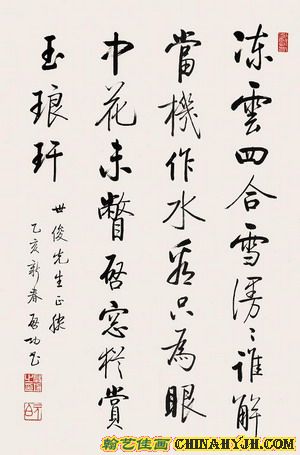 凍雲四合雪漫〻誰解
當機作水看只為眼
中花未瞥啓窓猶賞
玉琅玕
世俊先生正腕
乙亥新春 啓功書
翰艺佳画 CHINAHYJH.COM